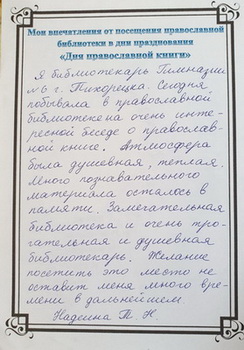 Мои впечатления от посещения православной
библиотеки в дни празднования
«Дня православной книги»
Я библиотекарь Гимназии
№6 г. Тихорецка. Сегодня
побывала в православной
библиотеке на очень инте-
ресной беседе о православ-
ной книге. Атмосфера
была душевная, теплая.
Много познавательного
материала осталось в
памяти. Замечательная
библиотека и очень тро-
гательная и душевная
библиотекарь. Желание
посетить это место не
оставит меня много вре-
мени в дальнейшем
Надеина Т. Н.